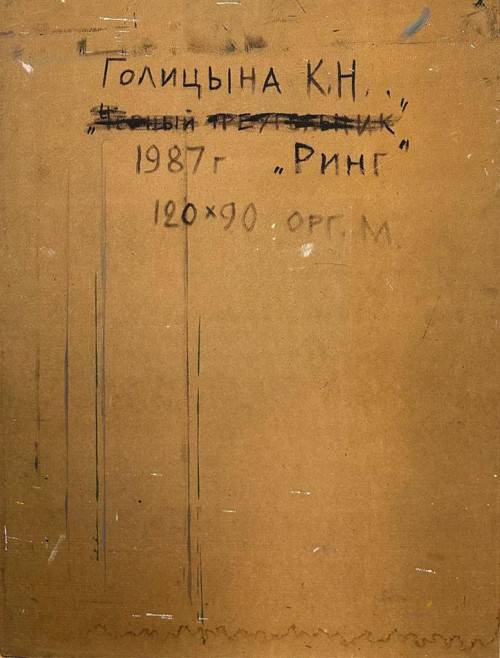 ГОЛИЦЫНА К.Н..
„Черный треугольник"
1987 г „РИНГ"
120×90 ОРГ. М.